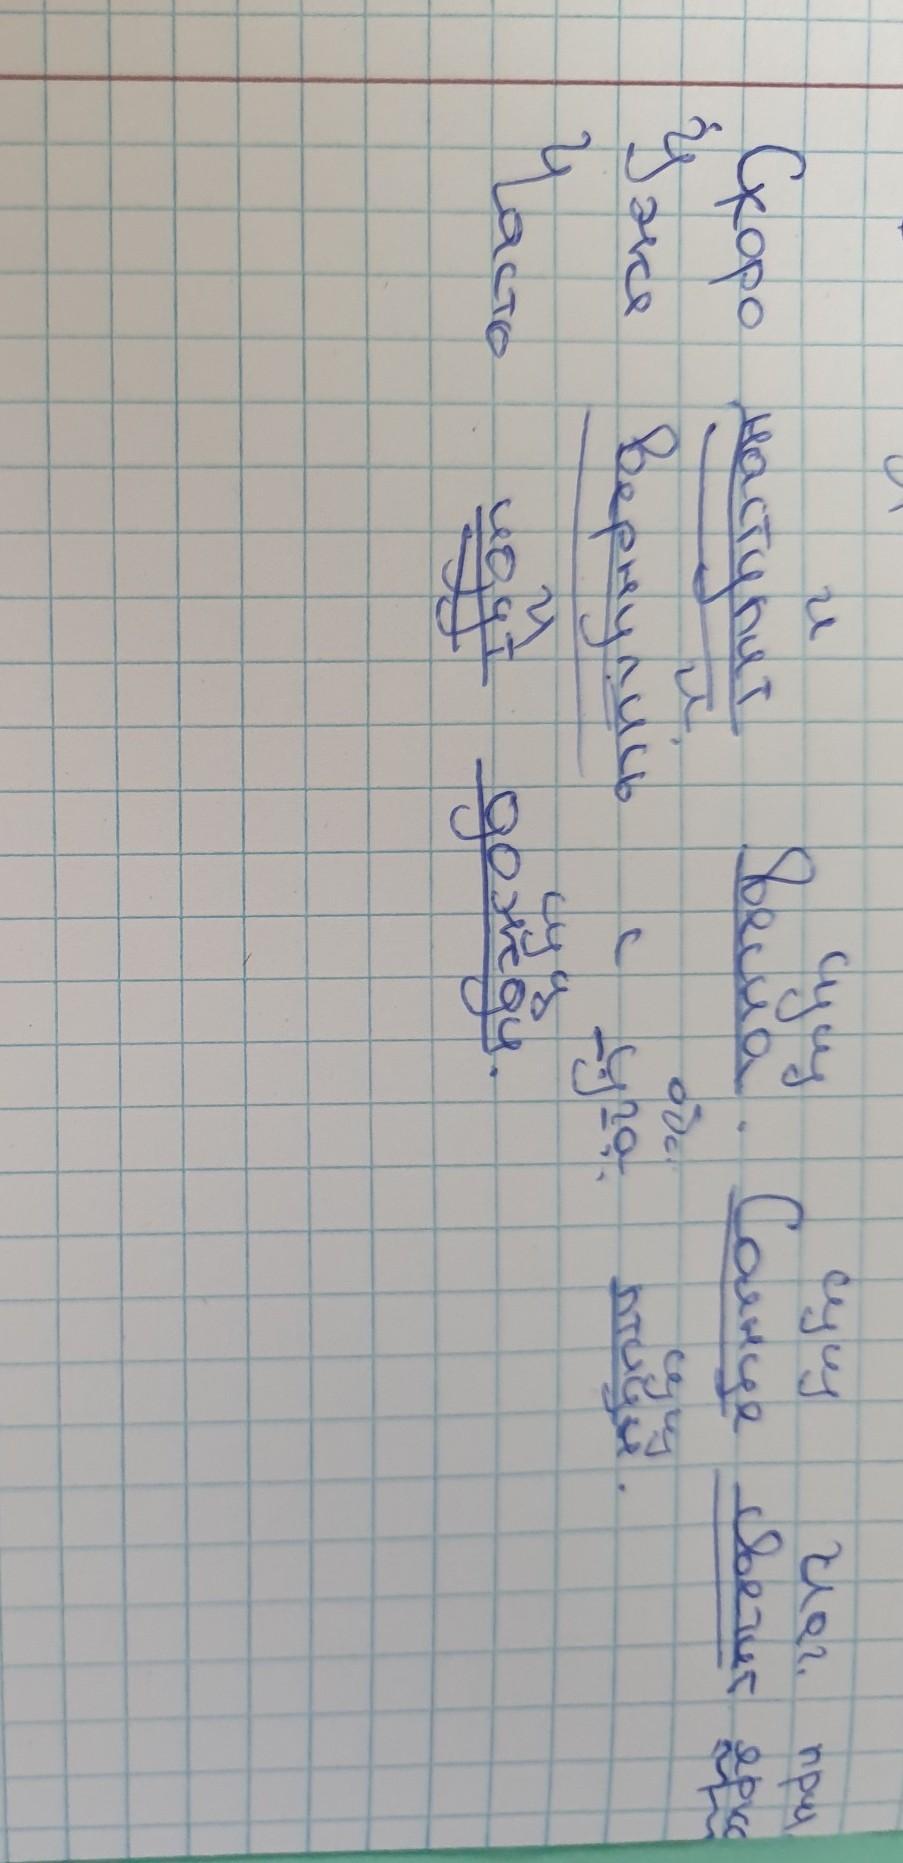 сущ сущ
Скоро наступит весна. Солнце светит ярко
обс. сущ
Уже вернулись с юга птицы.
сущ
Часто идут дожди.